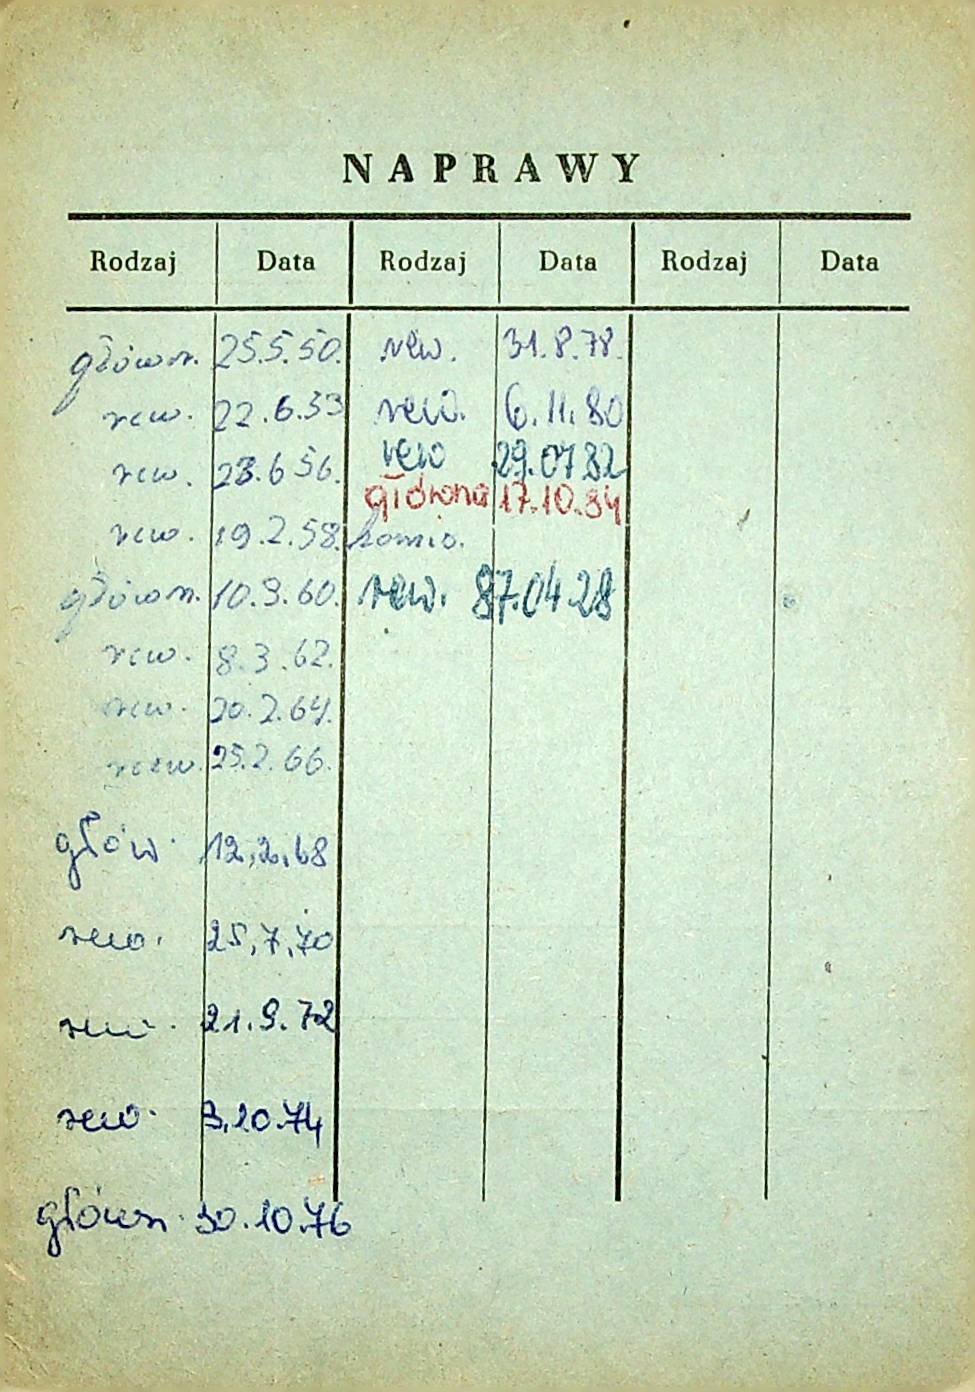 NAPRAWY
Rodzaj Data Rodzaj Data Rodzaj Data
główn. 25.5.50.
rew. 22.6.53
rew. 23.6 56.
rew. 19.2.58.
główn. 10.9.60.
rew. 8.3.62.
rew. 20.2.64.
rew. 25.2.66.
głów. 12.2.68
rew. 25.7.70
rew. 21.9.72
rew. 3.10.74
główn. 30.10.76
rew. 31.8.78.
rew. 6.11.80
rew 29.07 82
główna 17.10.84
rew. 87.04.28